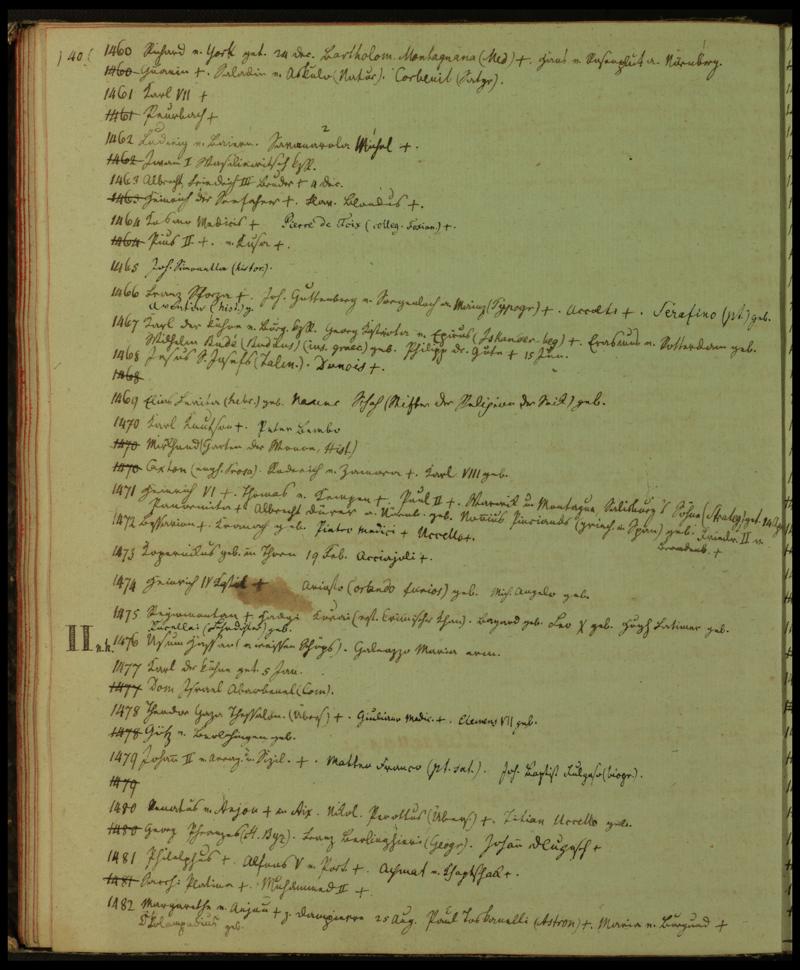 )40(
1460 Richard v. York get. 24 dec. Bartholom. Montagnana (Med) +. Hans v. Rosenplut a. Nürnberg.
1460 Guarin +. Paladin v. Askulo (Natur). Corbenit (Satyr).
1461 Karl VII +
1461 Peurbach +
1462 Ludwig v. Baiern. Savanarola Michel +.
1462 Iwan I Wasiliewitsch
1463 Albrecht Friedrich III Bruder + 4 dec.
1463 Heinrich der Seefahrer +. Flav. Blondus +.
1464 Kosmo Medicis + Pierre de Foix (colleg. Foxian.) +.
1464 Pius II +. v. Kusa +.
1465 Joh. Simonetta (histor).
1466 Franz Sforza +. Joh. Guttenberg v. Sorgenloch a. Mainz (Typogr) +. Accolti +. Serafino (pt.) geb.
Aventin (hist.) g.
1467 Karl der Kühne v. Burg. Georg Kastriota v. Epirus (Iskander-beg) +. Erasmus v. Rotterdam geb.
Wilhelm Budé (Budäus) (ins. graec) geb. Philipp der Gute + 15 Jun.
1468 Jesus S. Josefs (Talm.). Dunois +.
1468
1469 Elias Levita (hebr.) geb. Nanec Schah (Stifter der Religion der Seik) geb.
1470 Karl Knutson +. Peter Bembo
1470 Mirkhand (Garten der Wonne, Hist.)
1470 Caxton (engl. Prosa). Roderich v. Zamora +. Karl VIII geb.
1471 Heinrich VI +. Thomas v. Kempen +. Paul II +. Warwick u. Montague, Salisbury's Söhne
Panormita + Albrecht dürer v. Nürnb. geb. Nonius Pincianus (griech. u. Span) geb. Friedr. II v.
Brandenb. +
1472 Bessarion +. Kranach geb. Pietro Medici + Uccello +.
1473 Kopernikus geb. in Thorn 19 Feb. Acciajoli +.
1474 Heinrich IV Kastil + Ariosto (orlando furioso) geb. Mich. Angelo geb.
1475 Regiomontan + Hadgi Kerai (erst. Crimischer Chan). Bayard geb. Leo X geb. Hugh Latimer geb.
Rucellai geb.
II n.k. 1476 Usum Hassan v. weissen Schöps). Galeazzo Maria erm.
1477 Karl der Kühne get. 5 Jan.
1477 Dom Israel Abarbenel (Com).
1478 Theodor Gaza Thessalon. (Übers) +. Giuliano Medic. +. Clemens VII geb.
1478 Götz v. Berlichingen geb.
1479 Johann II v. Arrag. u. Sizil. +. Matteo Franco (pt. sat.). Joh. Baptist Fulgoso (biogr).
1479
1480 Renatus v. Anjou + in Aix. Nikol. Perottus (Übers) +. Titian Uccello geb.
1480 Georg Phranzes (H. Byz). Franz Berlinghieri (Geogr). Johann Dlugosch +
1481 Philelphus +. Alfons V v. Port +. Achmat v. Chaptschak +.
1481 Barth: Platina +. Muhammed II +
1482 Margarethe v. Anjou + z. Dampierre 25 Aug. Paul Toskanelli (Astron) +. Maria v. Burgund +
Ökolampadius geb.